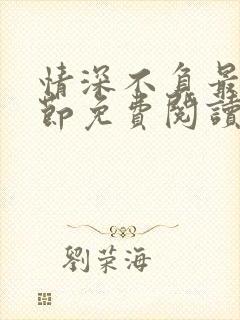 情深不負最
節免費閱讀
劉荣海